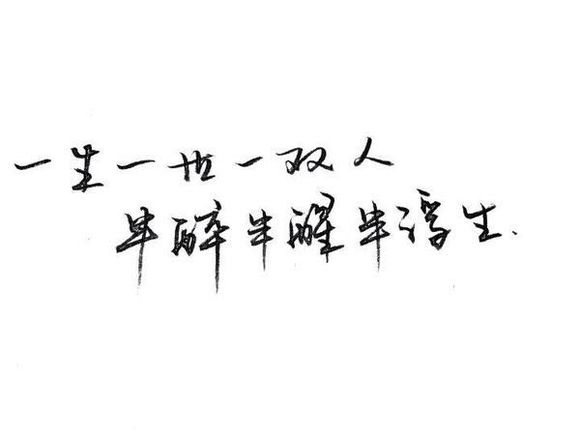 一生一世一双人
半醉半醒半浮生.